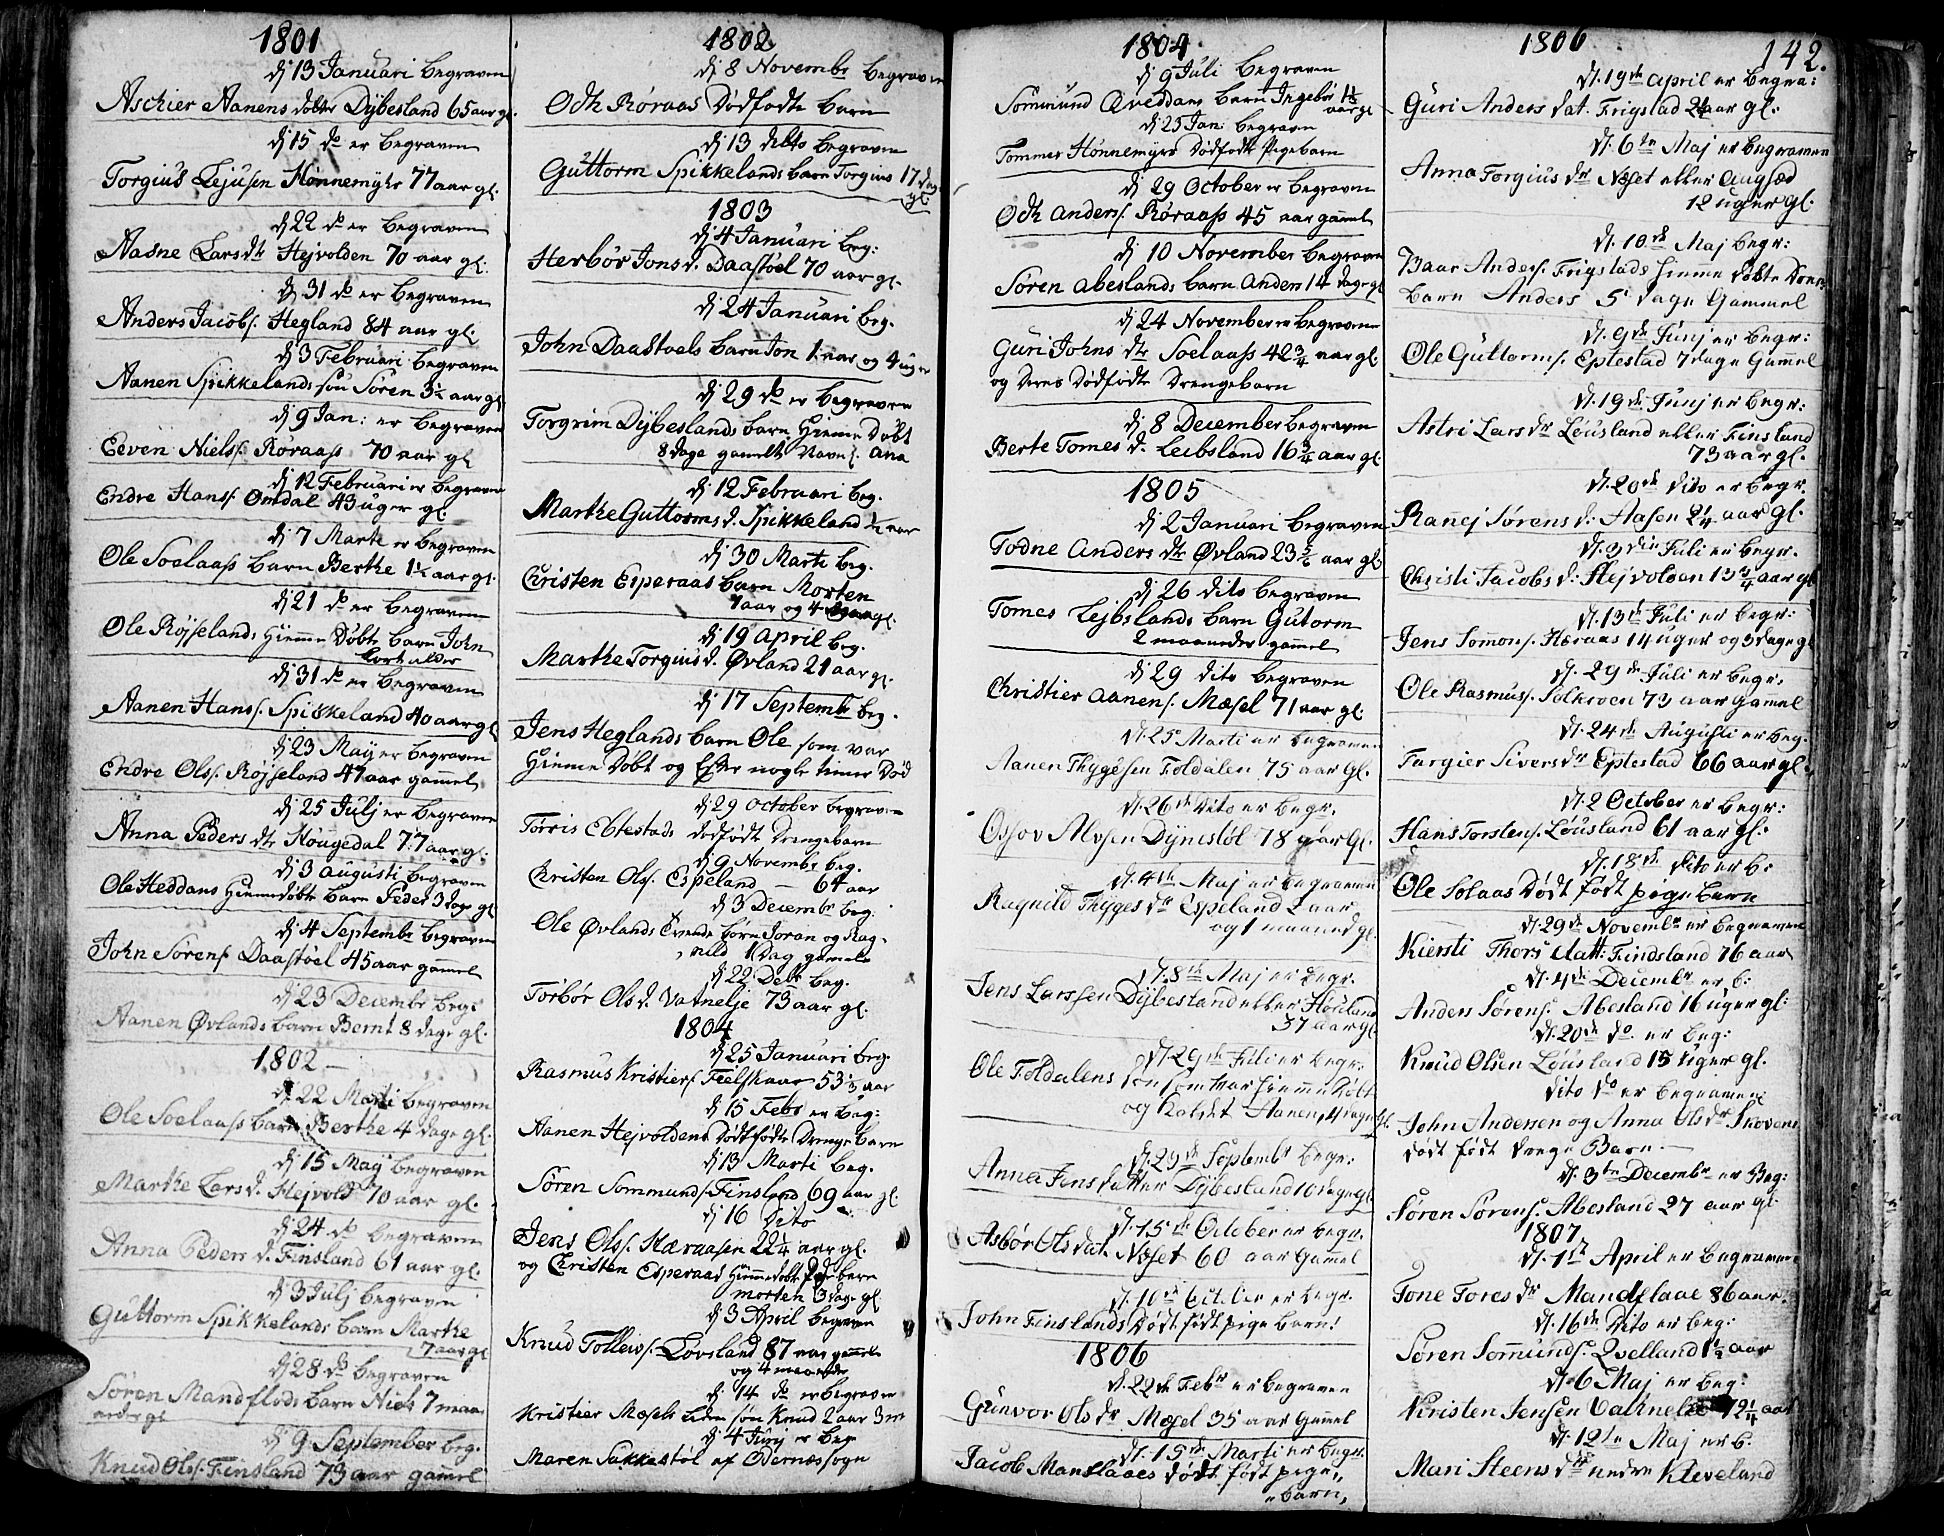 1801
dj 13 Januari begraven
Aschier Aanens dotter Dÿbesland 65 aar gl.
dj 15 do er begraven
Torgius Lejusen Hønnemyhr 77 aar gl.
dj 22 do er begraven
Aasne Lars dtr Hejvolden 70 aar gl.
dj 31 do er begraven
Anders Jacobs. Hegland 84 aar gl.
dj 3 Februari begraven
Aanen Spikkelands søn Søren 3½ aar gl
dj 9 Jan: er begraven
Eeven Niels. Røraas 70 aar gl
dj 12 Februari er begraven
Endre Hans. Omdal 43 uger gl
dj 7 Marti er begraven
Ole Soelaass barn Berthe 1¼ aar gl.
dj 21 do er begraven
Ole Røÿselands hiemme Døbte barn John
kort alder
dj 31 do er begraven
Aanen Hans. Spikkeland 40 aar gl
dj 23 Maÿ er begraven
Endre Ols. Røÿseland 47 aar gammel
dj 25 Julj er begraven
Anna Peders dtr Hougedal 77 aar gl.
dj 3 Augusti begraven
Ole Heddans Hiemmedøbte barn Peder 3 dage gl
dj 4 Septembr begraven
John Sørens. Daastøel 45 aar gammel
dj 23 Decembr beg:
Aanen Øvlands barn Bernt 8 dage gl.
1802 —
dj 22 Marti begraven
Ole Soelaass barn Berthe 4 dage gl.
dj 15 Maÿ begraven
Marthe Lars d. Hejvold 70 aar gl.
dj 24 do begraven
Anna Peders d. Finsland 61 aar gl.
dj 3 Julj begraven
Guttorm Spikkelands barn Marthe
7 aar gl
dj 28 do begraven
Søren Mandflods barn Niels 7 maa-
neder gl
dj 9 September beg.
Knud Ols. Finsland 73 aar gammel
1802
dj 8 Novembr begraven
Odh Røraas Dødfødte barn
dj 13 dito begraven
Guttorm Spikkelands barn Torgius 17 dage
gl.
1803
dj 4 Januari beg:
Herbør Jons d. Daastøel 70 aar gl.
dj 24 Januari beg.
John Daastoels barn Jon 1 aar og 4 uger
dj 29 do er begraven
Torgrim Dÿbeslands barn Hieme Døbt
8 dage gamelt Navnl. Ana
dj 12 Februari beg.
Marthe Guttorms d. Spikkeland ½ aar
dj 30 Marti beg.
Christen Esperaas barn Morten
7 aar og 4 dage gl.
dj 19 April beg.
Marthe Torgius d. Øvland 21 aar gl.
dj 17 Septembr beg.
Jens Heglands barn Ole som var
Hieme Døbt og Efter nogle timer Død
dj 29 October begraven
Torris Ebtestads dødfødt Drengebarn
dj 9 Novembr beg.
Christen Ols. Espeland — 64 aar
dj 3 Decembr beg.
Ole Øvlands tvende børn Joran og Rag-
nild 1 Dag gamele
dj 22 Deto beg.
Torbør Ols d. Vatnelje 73 aar gl.
1804
dj 25 Januari beg.
Rasmus Kristiers. Fielskaar 53⅓ aar
dj 15 Febr er beg:
Aanen Hejvoldens Dødfødte Drenge barn
dj 13 Marti beg.
Søren Sommunds. Finsland 69 aar gl.
dj 16 Dito
Jens Ols. Haraasen 22¼ aar gl.
og Christen Esperaas hiemmedøbte barn
morten 3 dage gl
dj 3 April begraven
Knud Tollevs. Løvsland 87 aar gammel
og 4 maaneder
dj 14 do er begraven
Kristier Mæsels liden søn Knud 2 aar 3 m
dj 4 Junj er beg
Maren Sukkestøl af Odernæssogn
1804
dj 9 Juli begraven
Sommund Aveddans barn Ingebør 1½
aar gl
dj 25 Jan: begraven
Tommes Hønnemyrs Dødfødte Pigebarn
dj 29 October er begraven
Odh Anders. Røraass 45 aar gammel
dj 10 November begraven
Søren Abeslands barn Anders 14 dage gl
dj 24 November er begraven
Guri Johns dtr Soelaass 42¾ aar gl.
og Deres Dødfødte Drengebarn
dj 8 December begraven
Berte Tomes d. Leibsland 16¾ aar gl.
1805
dj 2 Januari begraven
Todne Anders dtr Øvland 23 5/6 aar gl
dj 26 dito begraven
Tomes Lejbslands barn Gutorm
2 maaneder gammel
dj 29 dito begraven
Christier Aanens. Mæsel 71 aar gl.
d. 25 Marti er begraven
Aanen Thygesen Foldalen 75 aar gl.
d. 26de Dito er begr.
Ossov Alvsen Dÿnestøl 78 aar Gl.
d. 4de Maj er begraven
Ragnild Thÿges dtr Espeland 2 aar
og 1 maaned gl.
d. 8de Maj er begr.
Jens Larssen Dÿbesland eller Høisland
37 aar gl.
d. 29de Juli er begr:
Ole Foldalens søn som var hiemme døbt
og kaldet Aanen, 4 dage gl
d. 29de Septembr begr:
Anna Jens datter Dÿbesland 10 dage gl.
d. 15de October er begr.
Asbør Ols dat. Næset 60 aar Gammel
d. 10de October er begr.
John Finslands Dødt født pige barn!
1806
d. 22de Febr er begraven
Gunvor Ols dtr Mæsel 35 aar Gammel
d. 15de Marti er begr.
Jacob Manslaaes dødt født pige,,
,,barn,
1806
142.
d. 19de April er begra:
Guri Anders dat. Frigstad 24 aar gl.
d. 6te Maj er begraven
Anna Torgius dtr Næset eller Augsæd
12 uger gl.
d. 10de Maj begr:
Baar Anders. Frigstads hiemme døbte Drenge
barn Anders 5 dage Gammel
d. 9de Junj er begr:
Ole Guttorms. Eptestad 7 dage Gammel
d. 19de Junj er begr:
Astri Lars dtr Løusland eller Finsland
73 aar gl.
d. 20de Dito er begr.
Ranej Sørens d. Aasen 2¼ aar gl.
d. 3die Juli er begr.
Christi Jacobs d: Hejvolden 13¾ aar gl
d. 13de Juli er begr:
Jens Somons. Haraas 14 uger og 3 dage gl
d. 29de Juli er begr.
Ole Rasmus. Solkroen 73 aar Gammel
d. 24de Augusti er beg.
Targier Sivers dr Eptestad 66 aar gl.
d. 2 October er begr:
Hans Torstens. Løusland 61 aar gl.
d. 18de Dito er b:
Ole Solaas Dødt født pige barn
d. 29de Novembr er begraven
Kiersti Thors datt: Findsland 76 aar
d. 4de Decembr er b:
Anders Sørens. Abesland 16 uger gl.
d. 20de do er beg:
Knud Olsen Løusland 15 uger gl.
dito do er begraven
John Andersen og Anna Ols dr Skovens
dødt født drenge Barn —
d. 3te Decembr er Beg:
Søren Sørens. Abesland 27 aar gl
1807
d. 1te April er begraven
Tone Tores dr Mandflaae 86 aar
d. 16de Dito er beg:
Søren Somunds. Qvelland 1½ aar
d. 6 Maj er beg:
Kiristen Jensen Vathnelie 79¼ aar
d. 12te Maj er b.
Mari Steens dtr nedre Kleveland